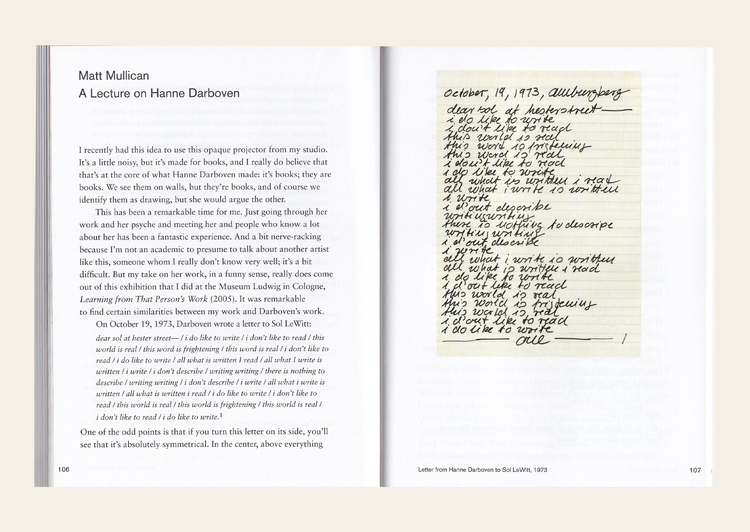 Matt Mullican
A Lecture on Hanne Darboven
I recently had this idea to use this opaque projector from my studio.
It's a little noisy, but it's made for books, and I really do believe that
that's at the core of what Hanne Darboven made: it's books; they are
books. We see them on walls, but they're books, and of course we
identify them as drawing, but she would argue the other.
This has been a remarkable time for me. Just going through her
work and her psyche and meeting her and people who know a lot
about her has been a fantastic experience. And a bit nerve-racking
because I'm not an academic to presume to talk about another artist
like this, someone whom I really don't know very well; it's a bit
difficult. But my take on her work, in a funny sense, really does come
out of this exhibition that I did at the Museum Ludwig in Cologne,
Learning from That Person's Work (2005). It was remarkable
to find certain similarities between my work and Darboven's work.
On October 19, 1973, Darboven wrote a letter to Sol LeWitt:
dear sol at hester street— / i do like to write / i don't like to read / this
world is real / this word is frightening / this word is real / i don't like to
read / i do like to write / all what is written I read / all what I write is
written / i write / i don't describe / writing writing / there is nothing to
describe / writing writing / i don't describe / i write / all what i write is
written / all what is written i read / i do like to write / i don't like to
read / this world is real / this world is frightening / this world is real /
i don't like to read / i do like to write.1
One of the odd points is that if you turn this letter on its side, you'll
see that it's absolutely symmetrical. In the center, above everything
106
october, 19, 1973, amburgberg
dear sol at hesterstreet —
i do like to write
i don't like to read
this world is real
this word is fristening
this word is real
i don't like to read
i do like to write
all what is written i read
all what i write is written
i write
i d'out describe
writingwriting
there is nothing to descripe
writing writing
i d'out describe
i write
all what i write is written
all what is written i read
i do like to write
i d'out like to read
this world is real
this world is fristening
this world is real
i d'out like to read
i do like to write
— one — /
Letter from Hanne Darboven to Sol LeWitt, 1973
107